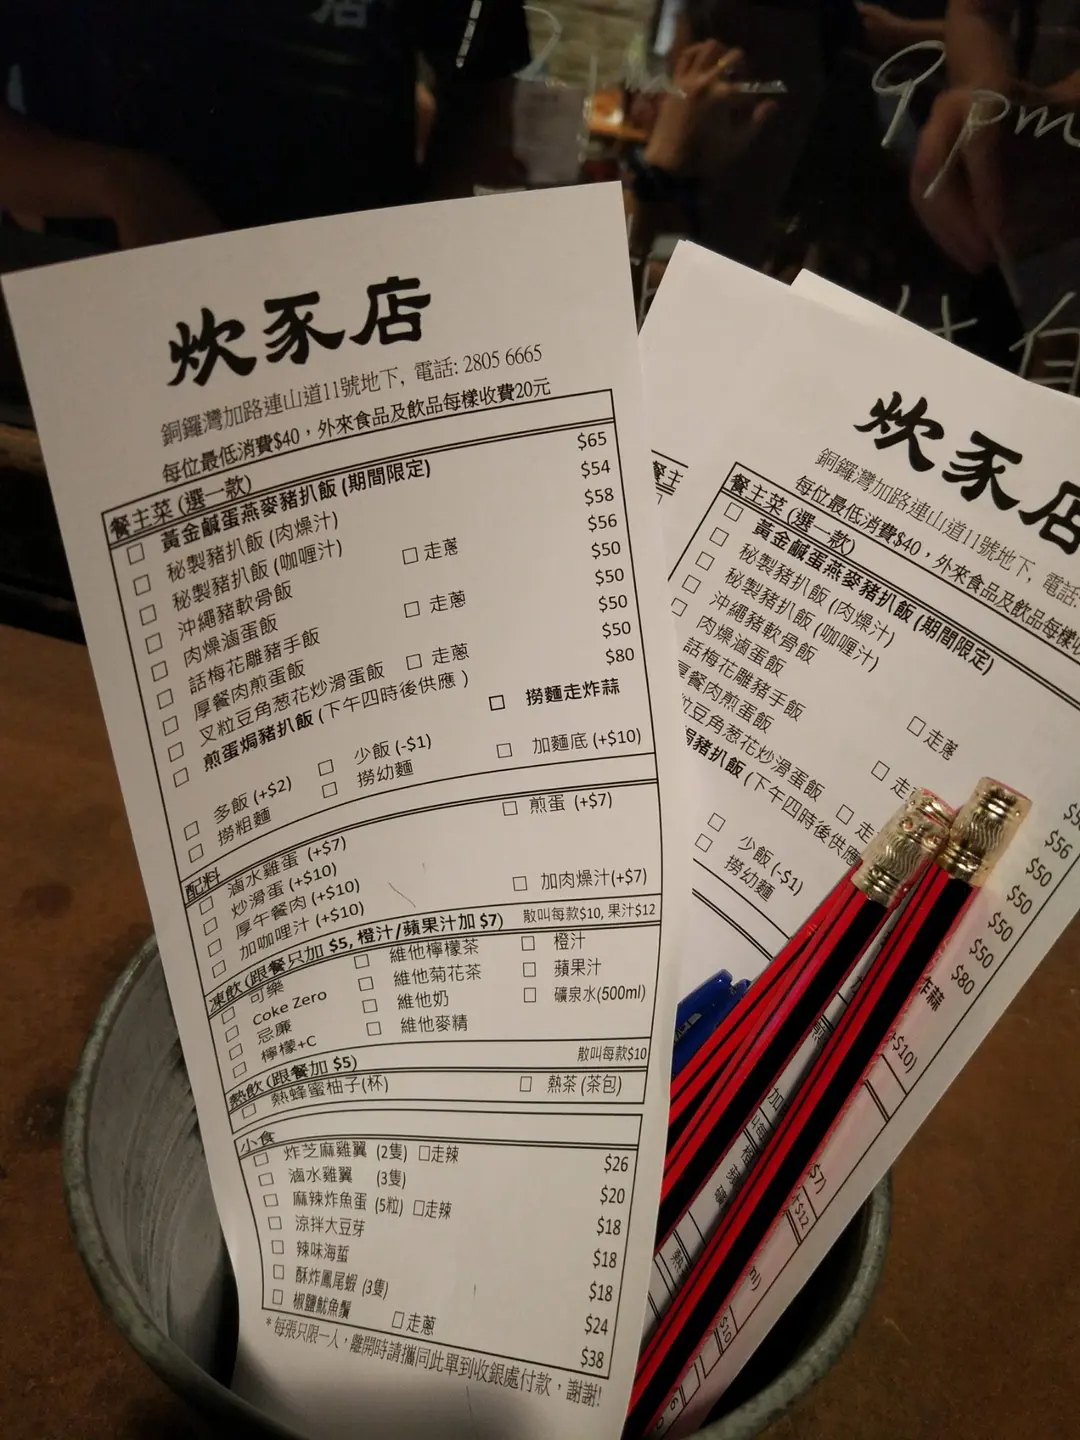 店
9pm
炊豕店
銅鑼灣加路連山道11號地下, 電話: 2805 6665
每位最低消費$40，外來食品及飲品每樣收費20元
餐主菜 (選一款)
□ 黃金鹹蛋燕麥豬扒飯 (期間限定) $65
□ 秘製豬扒飯 (肉燥汁) $54
□ 秘製豬扒飯 (咖喱汁) $58
□ 沖繩豬軟骨飯 □ 走蔥 $56
□ 肉燥滷蛋飯 $50
□ 話梅花雕豬手飯 □ 走蔥 $50
□ 厚餐肉煎蛋飯 $50
□ 叉粒豆角葱花炒滑蛋飯 □ 走蔥 $50
□ 煎蛋焗豬扒飯 (下午四時後供應 ) $80
□ 多飯 (+$2) □ 少飯 (-$1) □ 撈麵走炸蒜
□ 撈粗麵 □ 撈幼麵 □ 加麵底 (+$10)
配料
□ 滷水雞蛋 (+$7) □ 煎蛋 (+$7)
□ 炒滑蛋 (+$10)
□ 厚午餐肉 (+$10)
□ 加咖哩汁 (+$10) □ 加肉燥汁(+$7)
凍飲 (跟餐只加 $5, 橙汁/蘋果汁加 $7) 散叫每款$10, 果汁$12
□ 可樂 □ 維他檸檬茶 □ 橙汁
□ Coke Zero □ 維他菊花茶 □ 蘋果汁
□ 忌廉 □ 維他奶 □ 礦泉水(500ml)
□ 檸檬+C □ 維他麥精
熱飲 (跟餐加 $5) 散叫每款$10
□ 熱蜂蜜柚子(杯) □ 熱茶 (茶包)
小食
□ 炸芝麻雞翼 (2隻) □走辣 $26
□ 滷水雞翼 (3隻) $20
□ 麻辣炸魚蛋 (5粒) □走辣 $18
□ 涼拌大豆芽 $18
□ 辣味海蜇 $18
□ 酥炸鳳尾蝦 (3隻) $24
□ 椒鹽魷魚鬚 □走蔥 $38
* 每張只限一人，離開時請攜同此單到收銀處付款，謝謝!
炊豕店
銅鑼灣加路連山道11號地下, 電話:
每位最低消費$40，外來食品及飲品每樣收
餐主菜 (選一款)
□ 黃金鹹蛋燕麥豬扒飯 (期間限定)
□ 秘製豬扒飯 (肉燥汁)
□ 秘製豬扒飯 (咖喱汁)
□ 沖繩豬軟骨飯 □ 走蔥
□ 肉燥滷蛋飯 $56
話梅花雕豬手飯 $50
厚餐肉煎蛋飯 $50
粒豆角葱花炒滑蛋飯 $50
焗豬扒飯 (下午四時後供應 $50
$80
□ 少飯 (-$1)
□ 撈幼麵
餐主